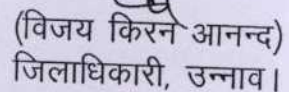 (विजय किरन आनन्द)
जिलाधिकारी, उन्नाव।